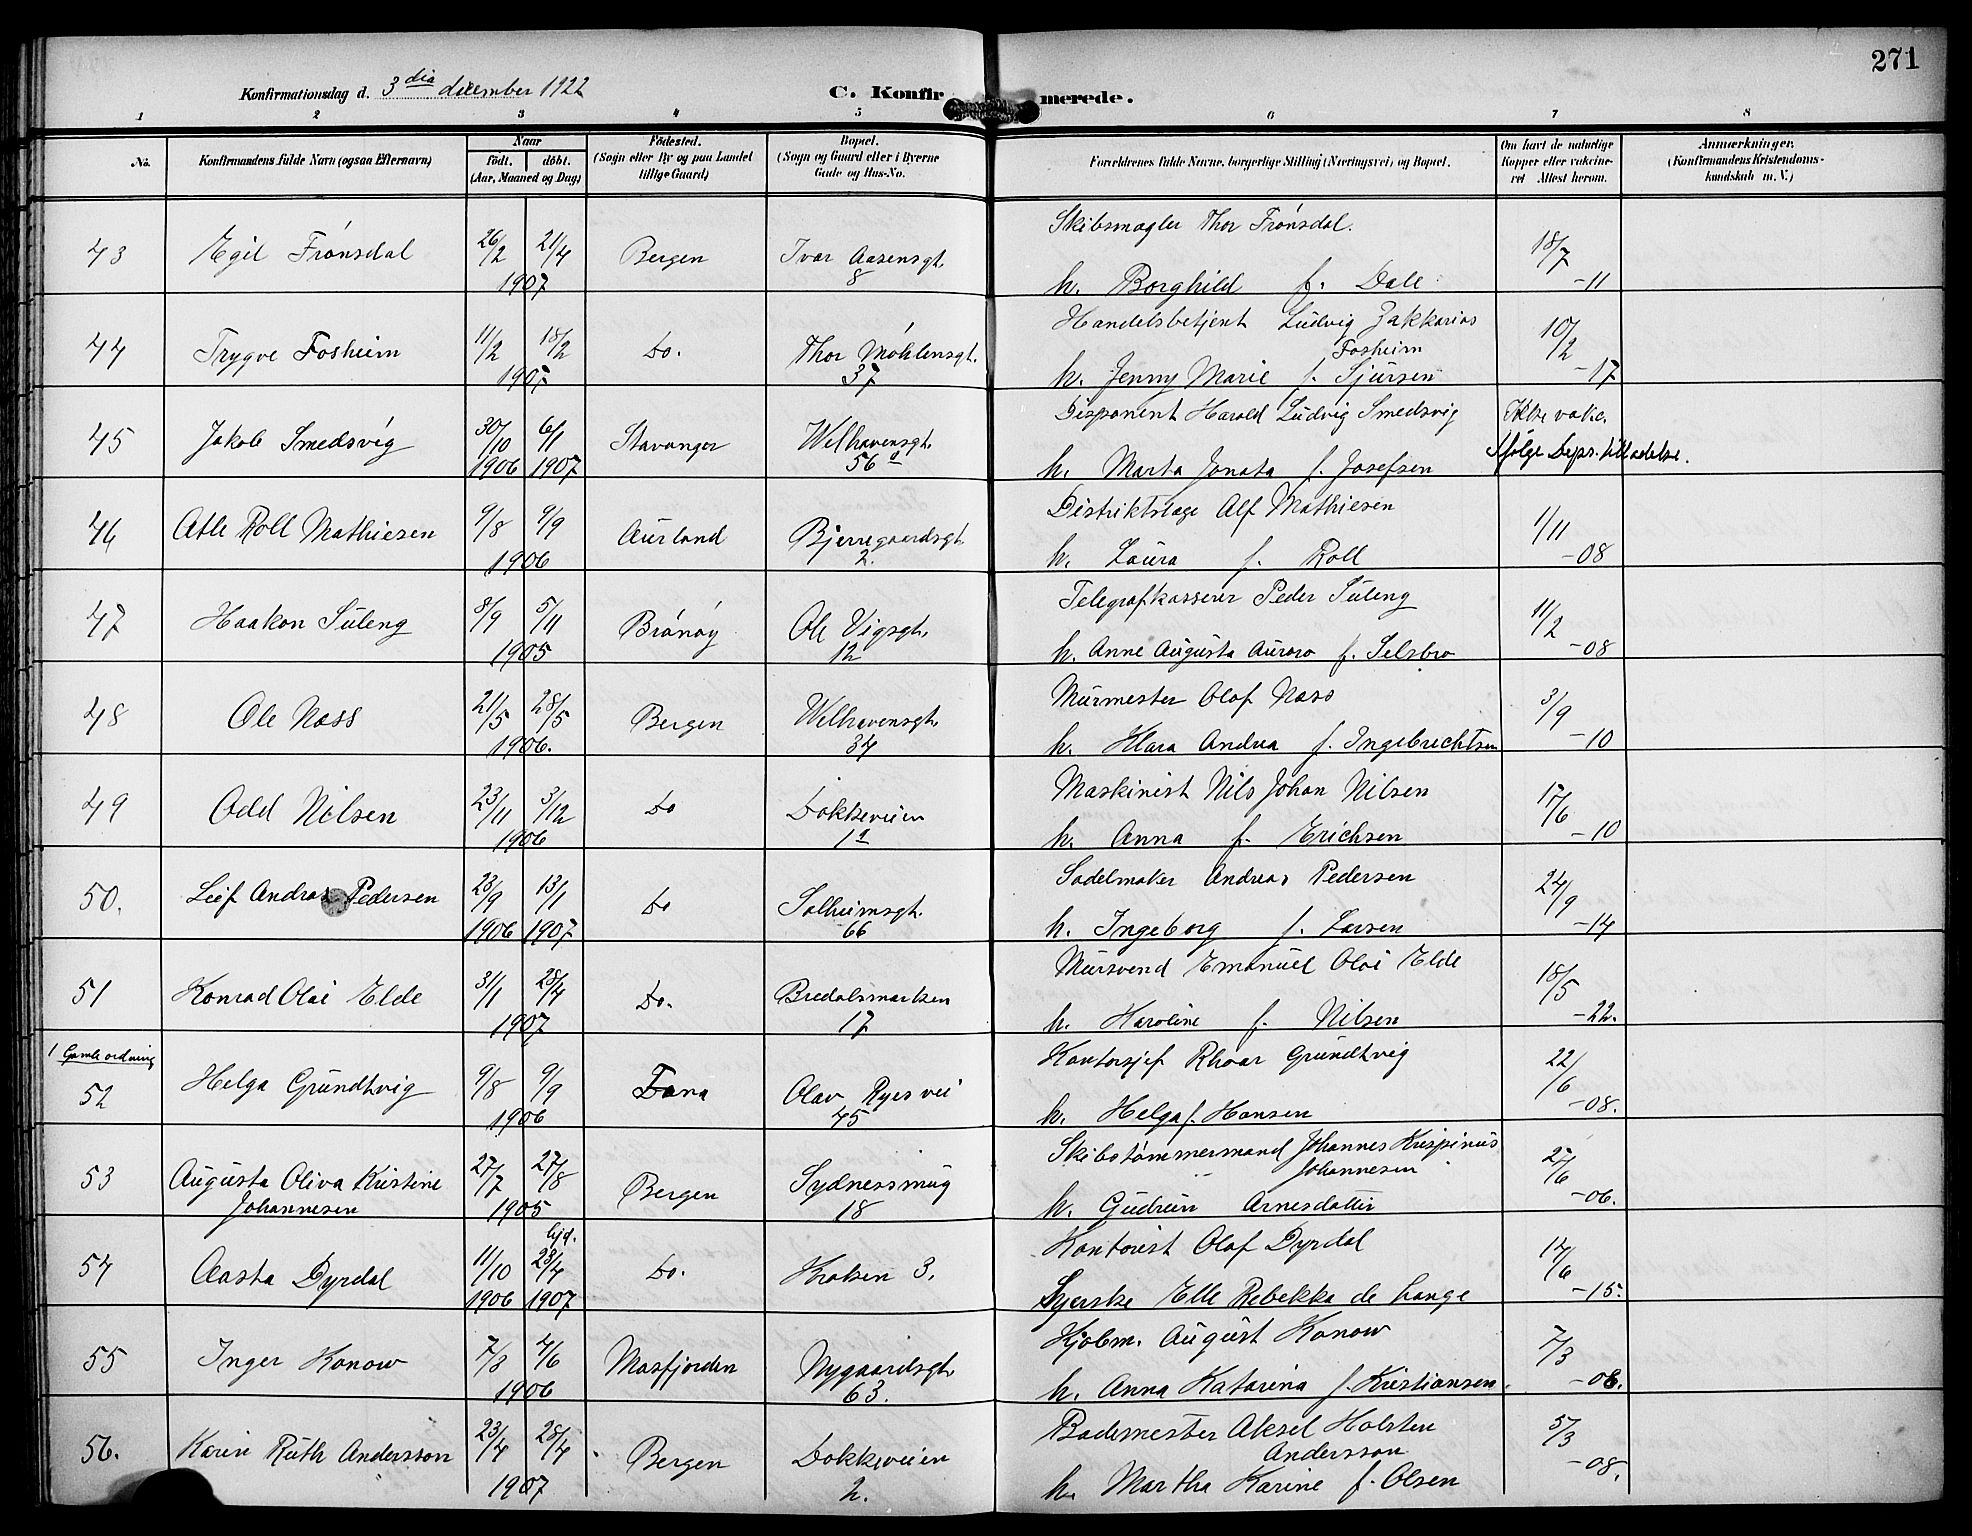 271
Konfirmationsdag d. 3 dia december 1922 C. Konfirmerede.
1 2 3 4 5 6 7 8
No. Konfirmandens fulde Navn (ogsaa Efternavn) Naar født. døbt. (Aar, Maaned og Dag) Fødested. (Sogn eller By og paa Landet tillige Gaard) Bopæl. (Sogn og Gaard eller i Byerne Gade og Hus-No. Forældrenes fulde Navne, borgerlige Stilling (Næringsvei) og Bopæl. Om havt de naturlige Kopper eller vaccineret Attest herom. Anmærkninger. (Konfirmandens Kristendomskundskab m. V.)
Skibsmægler Thor Frønsdal.
43 Egil Frønsdal 26/2 21/4 Bergen Ivar Aasensgt. 18/7
1907 8 h. Borghild f. Dale -11
Handelsbetjent Ludvig Zakkarias
44 Trygve Fosheim 11/2 18/2 Do. Thor Møhlensgt. Fosheim 10/2
1907 37 h. Jenny Marie f. Sjursen -17
Disponent Harald Ludvig Smedsvig Ikke vakc.
45 Jakob Smedsvig 30/10 6/1 Stavanger Welhavensgt.
1906 1907 56 a h. Marta Jonata f. Josefsen Ifølge Deps. tilladelse.
Distriktslæge Alf Mathiesen
46 Atle Roll Mathiesen 9/8 9/9 Aurland Bjerregaardsgt. 1/11
1906 2. h. Laura f. Roll -08
Telegrafkasserer Peder Suleng
47 Haakon Suleng 8/9 5/11 Brønøy Ole Vigsgt. 11/2
1905 12 h. Anne Augusta Aurora f. Selsbro -08
Murmester Olaf Næss
48 Ole Næss 21/5 28/5 Bergen Welhavensgt. 3/9
1906. 34 h. Klara Andrea f. Ingebrechtsen -10
Maskinist Nils Johan Nilsen
49 Odd Nilsen 23/11 3/12 Do Dokkeveien 17/6
1906 1 a h. Anna f. Erichsen -10
Sadelmaker Andreas Pedersen
50. Leif Andreas Pedersen 23/9 13/1 Do Solheimsgt. 24/9
1906 1907 66 h. Ingeborg f. Larsen -14
Mursvend Emanuel Olai Elde
51 Konrad Olai Elde 31/1 28/4 Do. Bredalsmarken 18/5
1907 17 h. Karoline f. Nilsen -22.
1 Gamle ordning Kontorsjef Rhoar Grundtvig
52 Helga Grundtvig 9/8 9/9 Fana Olav Ryes vei 22/6
1906 45 h. Helga f. Hansen -08.
Skibstømmermand Johannes Krispinus
53 Augusta Oliva Kristine 27/7 27/8 Bergen Sydnessmug Johannesen 27/6
Johannesen 1905 18 h. Gudrun Arnesdatter -06.
hjd. Kontorist Olaf Dyrdal
54 Aasta Dyrdal 11/10 23/4 Do. Kroken 3. 14/6
1906 1907 Syerske Elle Rebekka de Lange -15.
Kjøbm. August Konow
55 Inger Konow 7/8 4/6 Masfjorden Nygaardsgt. 7/3
1906 63. h. Anna Katarina f. Kristiansen. -08.
Bademester Aksel Holsten
56. Karin Ruth Andersson 23/4 28/4 Bergen Dokkeveien Andersson 5/3
1907 2. h. Martha Karine f. Olsen -08.